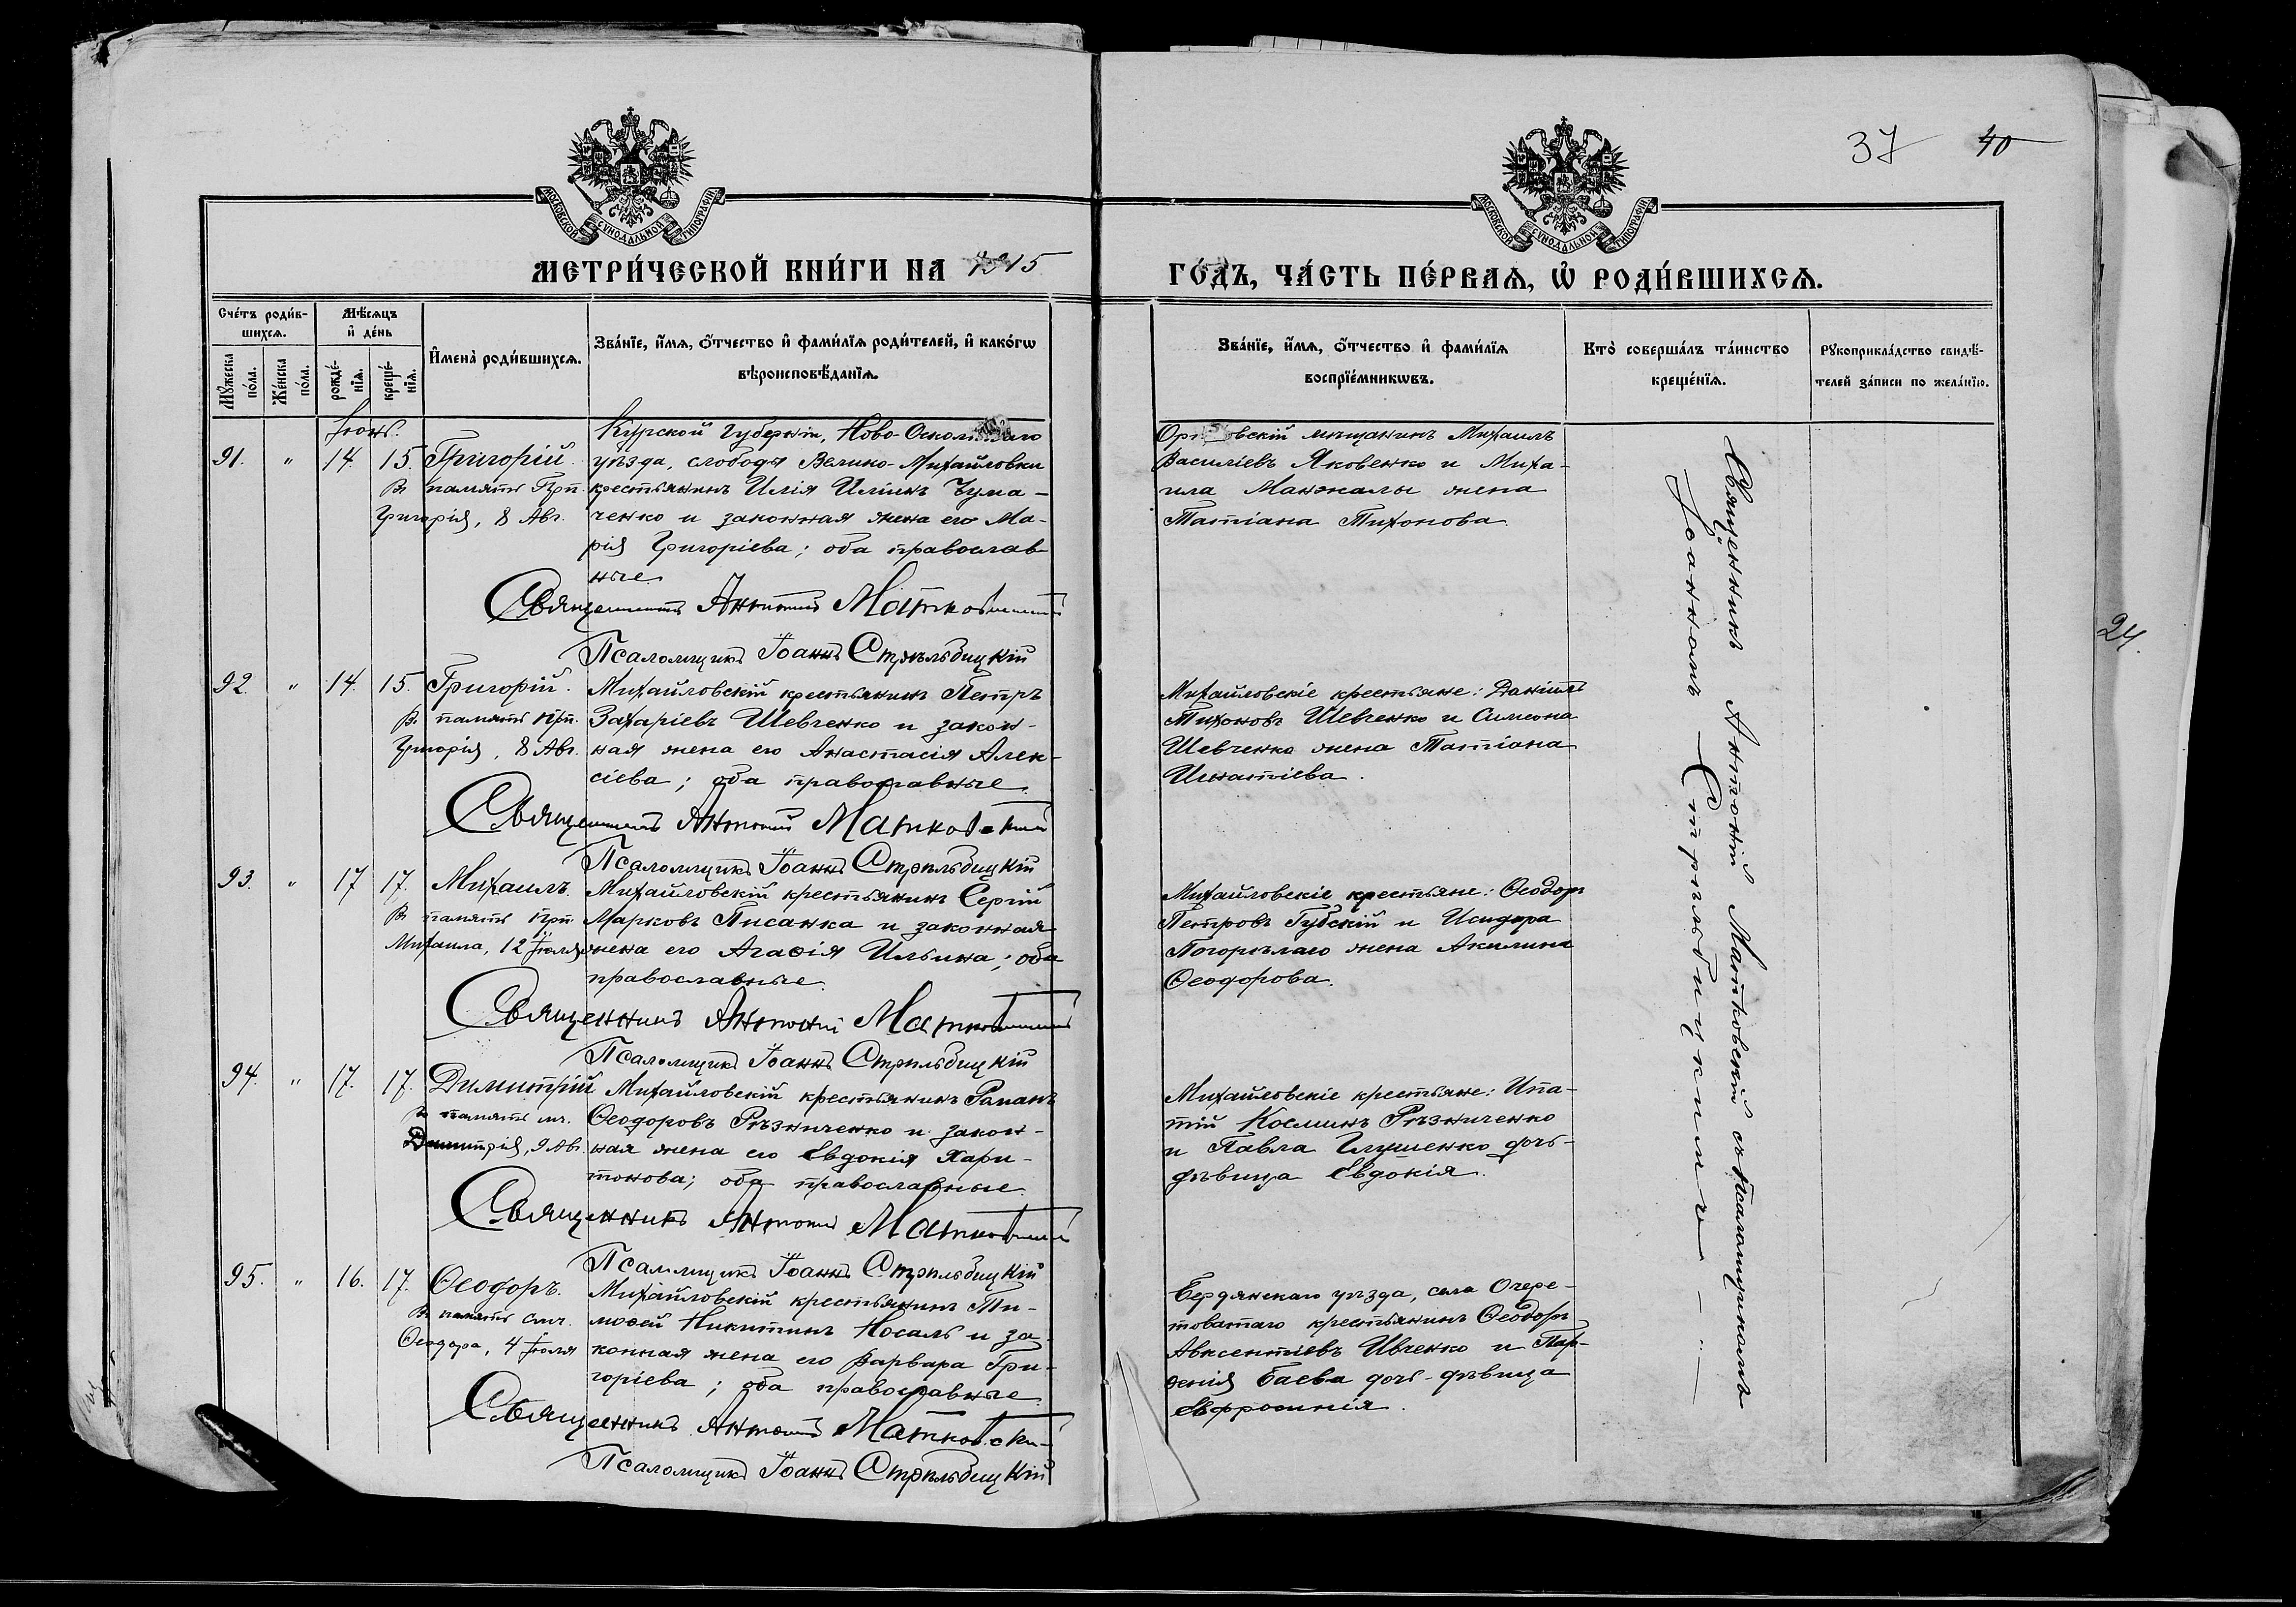 37 40
МОСКОВСКОЙ СУНОДАЛЬНОЙ ТИПОГРАФІИ
МОСКОВСКОЙ СУНОДАЛЬНОЙ ТИПОГРАФІИ
МЕТРИ́ЧЕСКОЙ КНИ́ГИ НА 1915
ГО́ДЪ, ЧА́СТЬ ПЕ́РВАѦ, Ѡ҆ РОДИ́ВШИХСѦ.
Сче́тъ роди́в-
шихсѧ.
Мꙋ́жеска по́ла.
Же́нска по́ла.
Мѣ́сѧцъ
и҆ де́нь
рожде́-
нїѧ.
креще́-
нїѧ.
И҆мена̀ роди́вшихсѧ.
Зва́нїе, и҆́мѧ, ѻ҆́тчество и҆ фами́лїѧ роди́телей, и҆ како́гѡ
вѣроисповѣ́данїѧ.
Зва́нїе, и҆́мѧ, ѻ҆́тчество и҆ фами́лїѧ
воспрїе́мникѡвъ.
Кто̀ соверша́лъ та́инство
креще́нїѧ.
Рꙋкоприкла́дство свидѣ́-
телей за́писи по жела́нїю.
Іюнь.
91. " 14. 15. Григорій.
Въ память Прп.
Григорія, 8 Авг.
Курской губерніи, Ново-Оскольскаго
уѣзда, слободы Велико-Михайловки
крестьянинъ Илія Иліинъ Чума-
ченко и законная жена его Ма-
рія Григоріева; оба православ-
ные.
Священникъ Антоній Матковскій
Псаломщикъ Іоаннъ Стрѣльбицкій
мѣщанинъ Михаилъ
Василіевъ Яковенко и Миха-
ила Манжалы жена
Татіана Тихонова.
92. " 14. 15. Григорій.
Въ память Прп.
Григорія, 8 Авг.
Михайловскій крестьянинъ Петръ
Захаріевъ Шевченко и закон-
ная жена его Анастасія Алек-
сіева; оба православные.
Священникъ Антоній Матковскій
Псаломщикъ Іоаннъ Стрѣльбицкій
Михайловскіе крестьяне: Даніилъ
Тихоновъ Шевченко и Симеона
Шевченко жена Татіана
Игнатіева.
93. " 17 17. Михаилъ.
Въ память Прп.
Михаила, 12 Іюля
Михайловскій крестьянинъ Сергій
Марковъ Писанка и законная
жена его Агаѳія Ильина; оба
православные.
Священникъ Антоній Матковскій
Псаломщикъ Іоаннъ Стрѣльбицкій
Михайловскіе крестьяне: Ѳеодоръ
Петровъ Губскій и Исидора
Погорѣлаго жена Акилина
Ѳеодорова.
94. " 17. 17. Димитрій
Въ память мч.
Димитрія, 9 Авг.
Михайловскій крестьянинъ Романъ
Ѳеодоровъ Рѣзниченко и закон-
ная жена его Евдокія Хари-
тонова; оба православные.
Священникъ Антоній Матковскій
Псаломщикъ Іоаннъ Стрѣльбицкій
Михайловскіе крестьяне: Ипа-
тій Косминъ Рѣзниченко
и Павла Глущенко дочь-
дѣвица Евдокія.
95. " 16. 17. Ѳеодоръ.
Въ память смч.
Ѳеодора, 4 Іюля
Михайловскій крестьянинъ Ти-
моѳей Никитинъ Носаль и за-
конная жена его Варвара Гри-
горіева; оба православные.
Священникъ Антоній Матковскій
Псаломщикъ Іоаннъ Стрѣльбицкій
Бердянскаго уѣзда, села Очере-
товатаго крестьянинъ Ѳеодоръ
Авксентіевъ Ивченко и Пар-
ѳенія Баева дочь-дѣвица
Евфросинія.
Священникъ Антоній Матковскій съ псаломщикомъ
Іоанномъ Стрѣльбицкимъ
24.